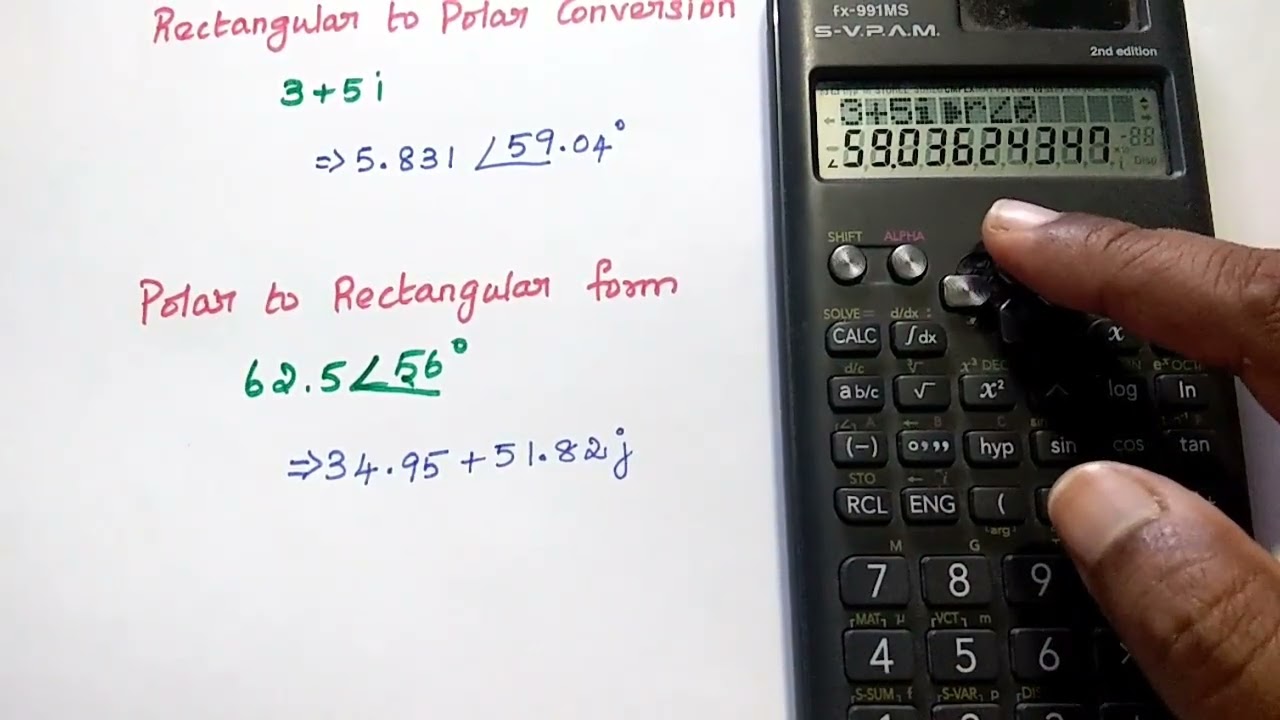 Rectangular to Polar Conversion
3+5i
⇒ 5.831 ∠59.04°
Polar to Rectangular form
62.5∠56°
⇒34.95+51.82j
fx-991MS
S-V.P.A.M.
2nd edition
3+5i▶r∠θ
∠59.03624347
SHIFT ALPHA
SOLVE = d/dx :
CALC ∫dx x
d/c ∛ x³ DEC eˣ
a b/c √ x² ^ log ln
∠ A B C
(−) °,,, hyp sin cos tan
STO ← i
RCL ENG (
arg
M G
7 8 9
MAT µ VCT m
4 5 6
S-SUM f S-VAR p